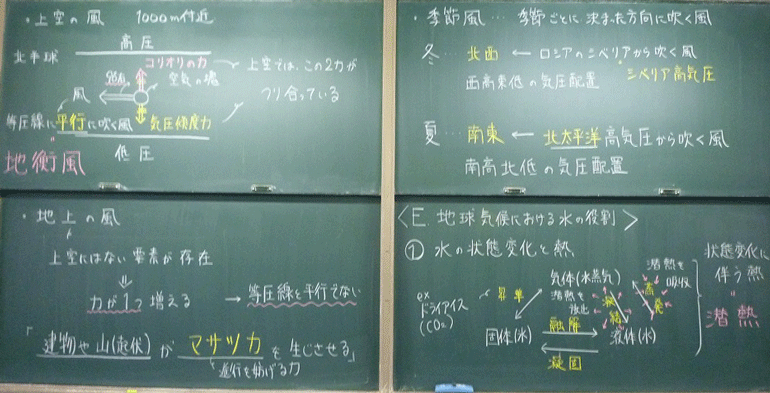 ・上空の風 1000m付近
北半球
高圧
コリオリの力
空気の塊
風
上空では、この2力が
つり合っている
等圧線に平行に吹く風
気圧傾度力
地衡風
低圧
・季節風…季節ごとに決まった方向に吹く風
冬…北西 ← ロシアのシベリアから吹く風
シベリア高気圧
西高東低の気圧配置
夏…南東 ← 北太平洋高気圧から吹く風
南高北低の気圧配置
・地上の風
上空にはない要素が存在
⇓
力が1つ増える → 等圧線と平行でない
「建物や山(起伏)がマサツ力を生じさせる」
進行を妨げる力
<E. 地球気候における水の役割>
① 水の状態変化と熱
ex
ドライアイス
(CO₂)
昇華
気体(水蒸気)
潜熱を
吸収
潜熱を
放出
凝結
蒸発
固体(氷)
融解
液体(水)
凝固
状態変化に
伴う熱
〃
潜熱